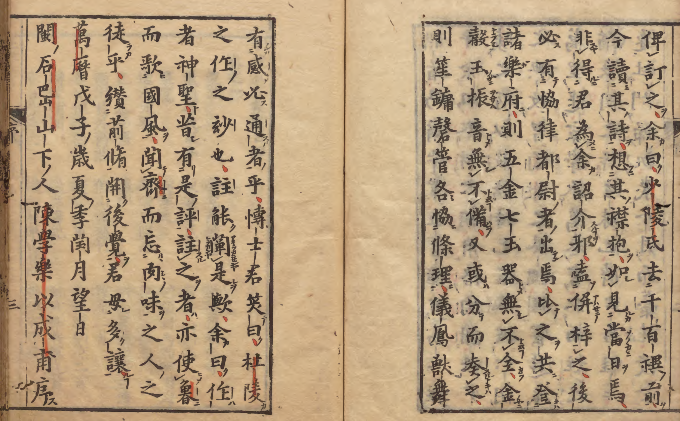 俾訂之余曰少陵氏去千百禩前
今讀其詩想其襟抱如見當日焉
非得君為余詔介邪盍併梓之後
必有恊律都尉者出焉比之共登
諸樂府則五金七玉器無不全金
聲玉振音無不僃又或分而奏之
則篳鏞磬管各恊條理儀鳳獸舞
有感必通者乎慱士君笑曰杜陵
之作之玅也註能闡是歟余曰作
者神聖昔有是評註之者亦使夔
而歌國風聞齋而忘肉味之人之
徒乎纘前脩開後覺君毋多讓
萬曆戊子歲夏季閏月望日
閩石邑山下人陳學樂以成甫序
三